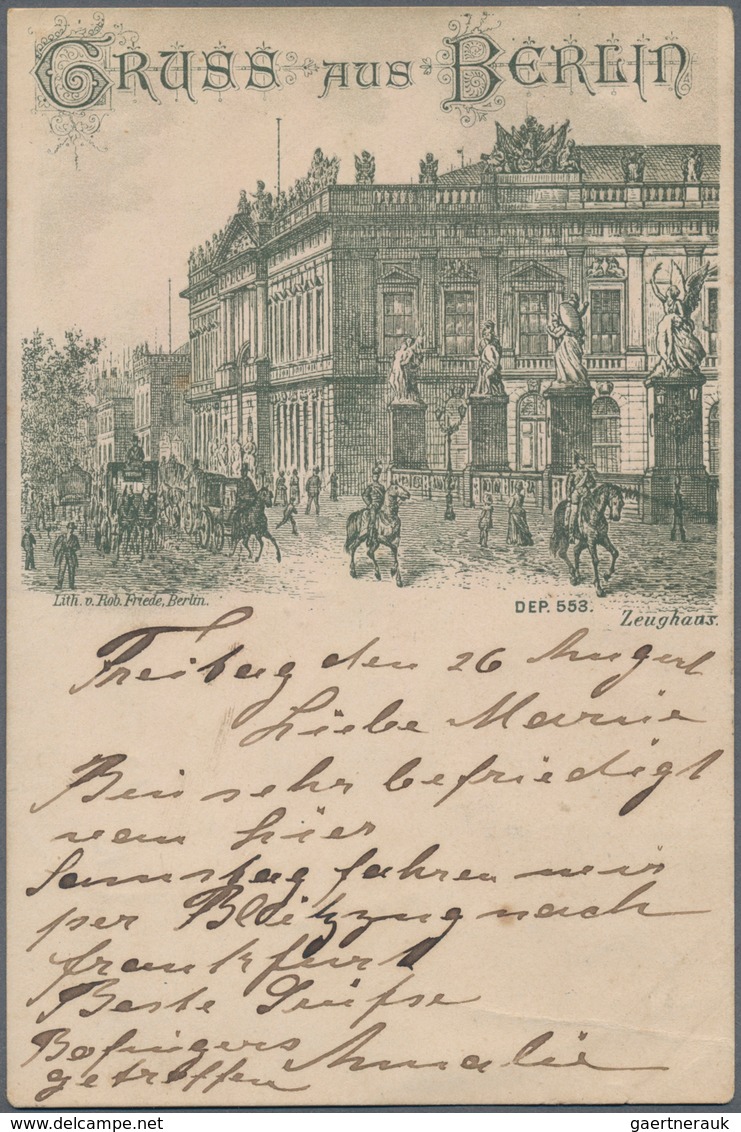 GRUSS AUS BERLIN
Lith. v. Rob. Friede, Berlin.
DEP. 553.
Zeughaus.
Freitag den 26 August
Liebe Marie
Bin sehr befriedigt
von hier
Samstag fahren wir
per Blitzzug nach
Frankfurt
Beste Grüße
Bofingers Amalie
getroffen
gaertnerauk